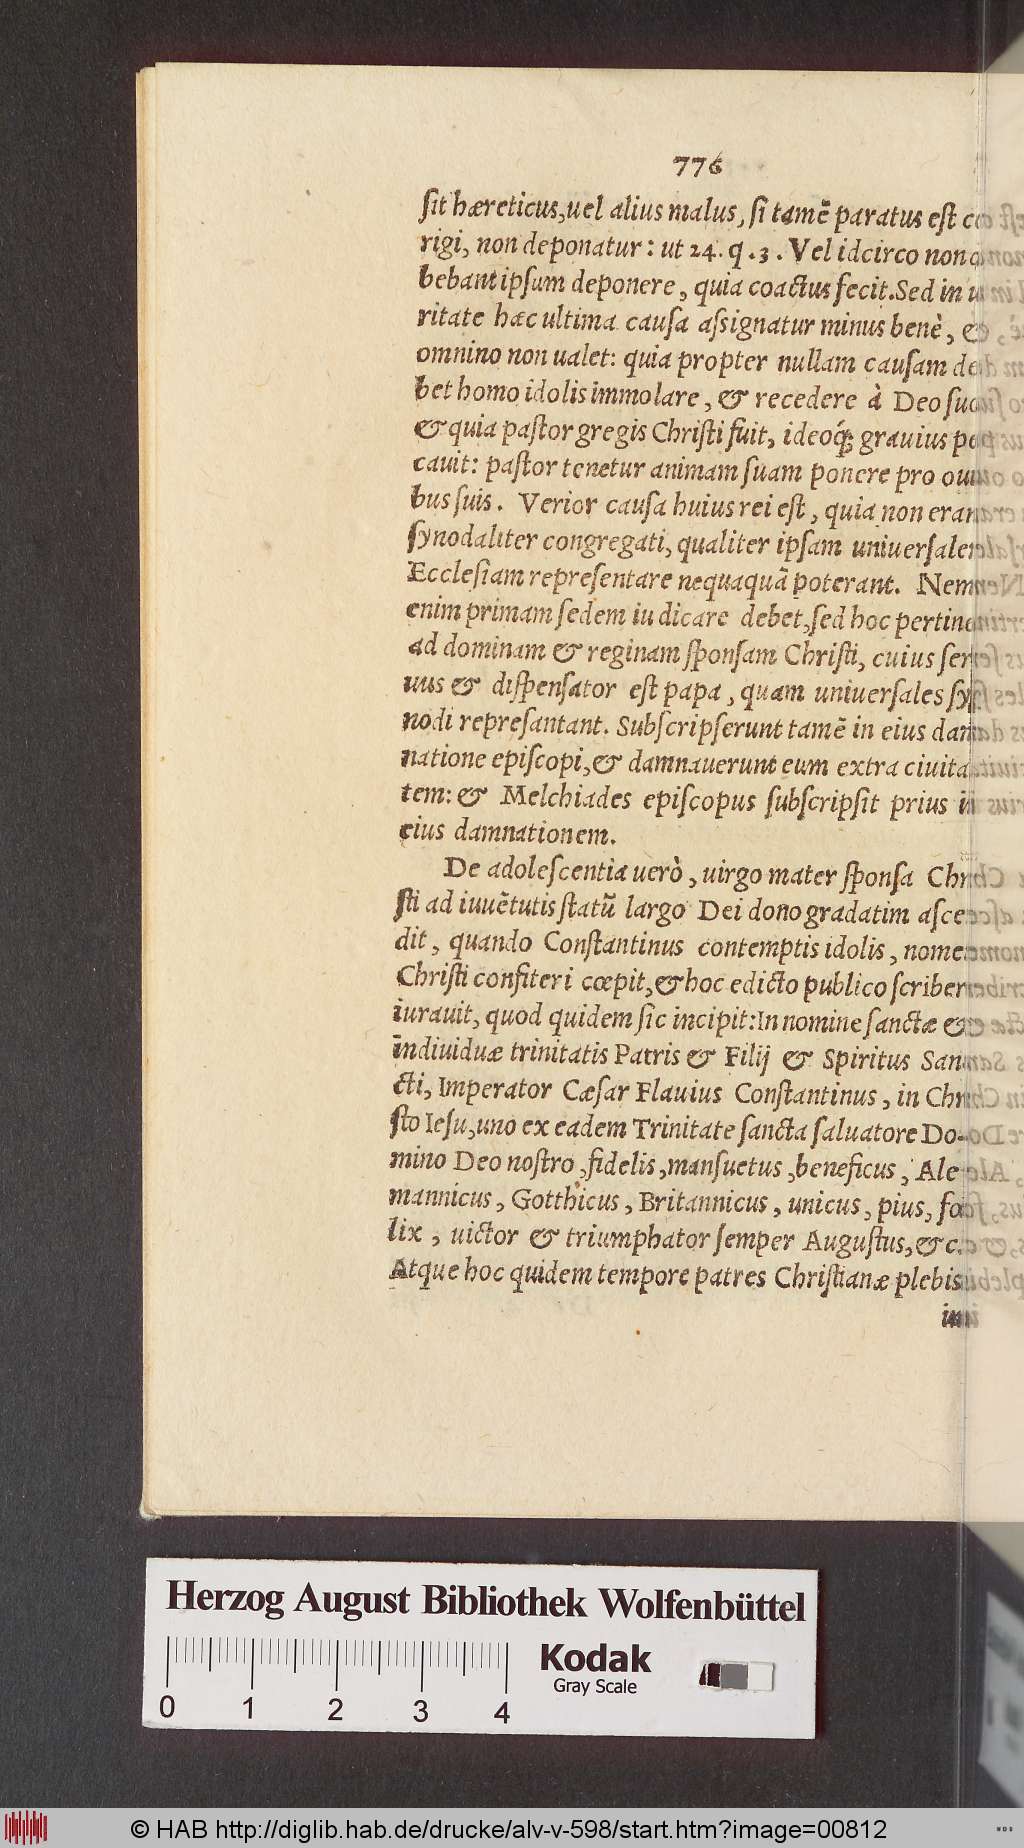 776
sit hæreticus, uel alius malus, si tamẽ paratus est co
rigi, non deponatur: ut 24. q. 3. Vel idcirco non
bebant ipsum deponere, quia coactus fecit. Sed in u
ritate hæc ultima causa assignatur minus benè, &
omnino non ualet: quia propter nullam causam de
bet homo idolis immolare, & recedere à Deo suo
& quia pastor gregis Christi fuit, ideoq́; grauius pec
cauit: pastor tenetur animam suam ponere pro oui
bus suis. Verior causa huius rei est, quia non erant
synodaliter congregati, qualiter ipsam uniuersalem
Ecclesiam repræsentare nequaquã poterant. Nemo
enim primam sedem iudicare debet, sed hoc pertinet
ad dominam & reginam sponsam Christi, cuius ser
uus & dispensator est papa, quam uniuersales sy
nodi represantant. Subscripserunt tamẽ in eius dam
natione episcopi, & damnauerunt eum extra ciuita
tem: & Melchiades episcopus subscripsit prius in
eius damnationem.
De adolescentia uerò, uirgo mater sponsa Chri
sti ad iuuẽtutis statũ largo Dei dono gradatim asce
dit, quando Constantinus contemptis idolis, nomen
Christi confiteri cœpit, & hoc edicto publico scribere
iurauit, quod quidem sic incipit: In nomine sanctæ &
indiuiduæ trinitatis Patris & Filij & Spiritus San
cti, Imperator Cæsar Flauius Constantinus, in Chri
sto Iesu, uno ex eadem Trinitate sancta saluatore Do-
mino Deo nostro, fidelis, mansuetus, beneficus, Ale
mannicus, Gotthicus, Britannicus, unicus, pius, fœ
lix, uictor & triumphator semper Augustus, &c.
Atque hoc quidem tempore patres Christianæ plebis
Herzog August Bibliothek Wolfenbüttel
Kodak
Gray Scale
0 1 2 3 4
© HAB http://diglib.hab.de/drucke/alv-v-598/start.htm?image=00812